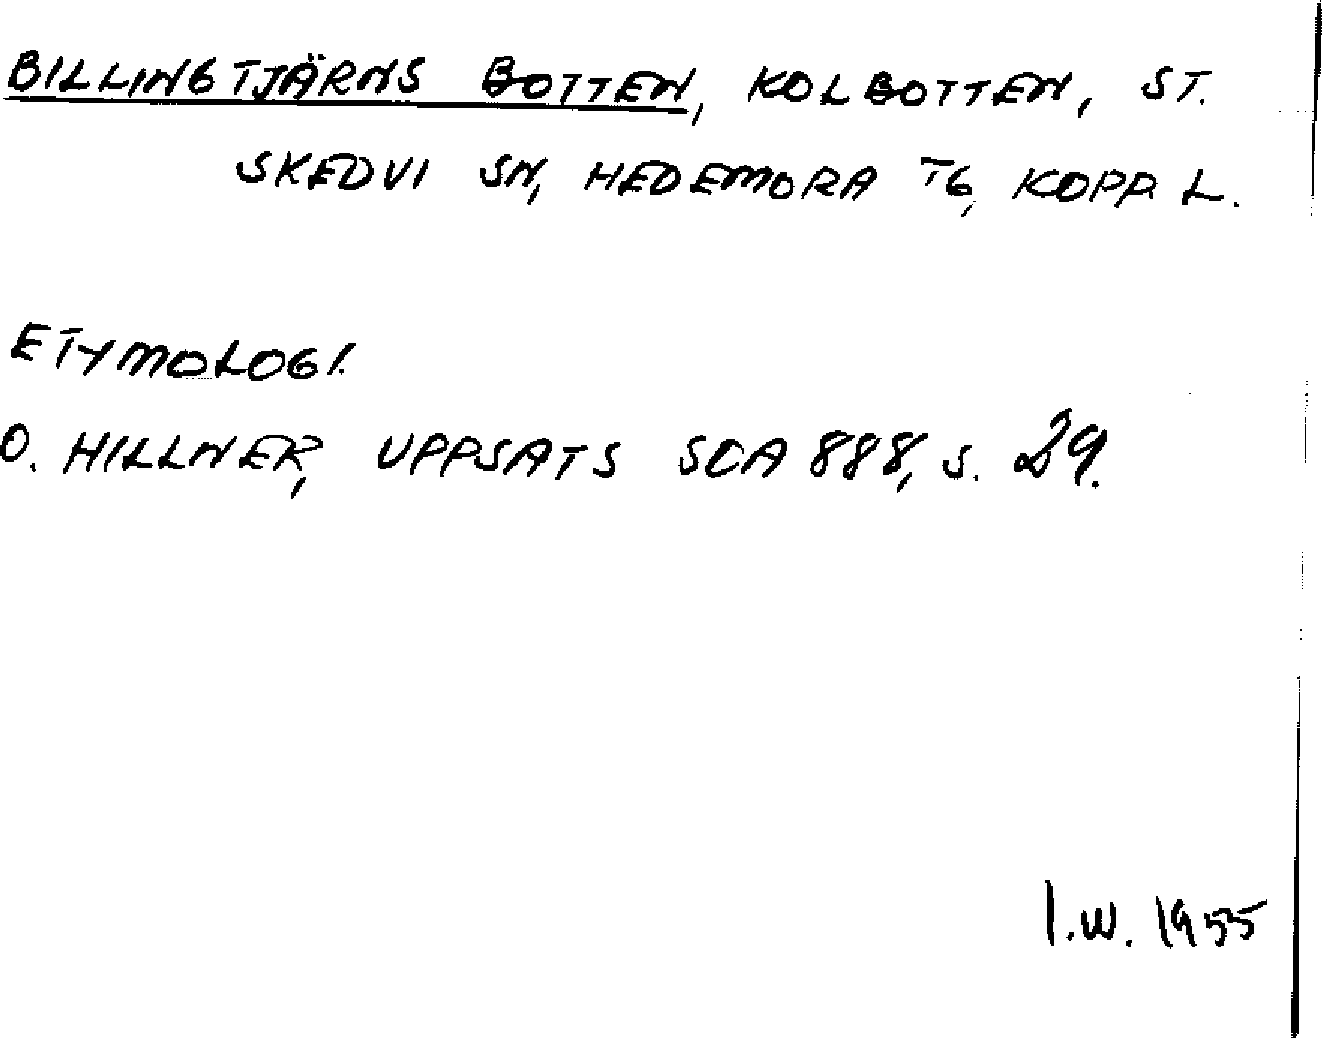 BILLINGTJÄRNS BOTTEN, KOLBOTTEN, ST.
SKEDVI SN, HEDEMORA TG, KOPP. L.
ETYMOLOGI.
O. HILLNER, UPPSATS SOA 888, S. 29.
I.W. 1955